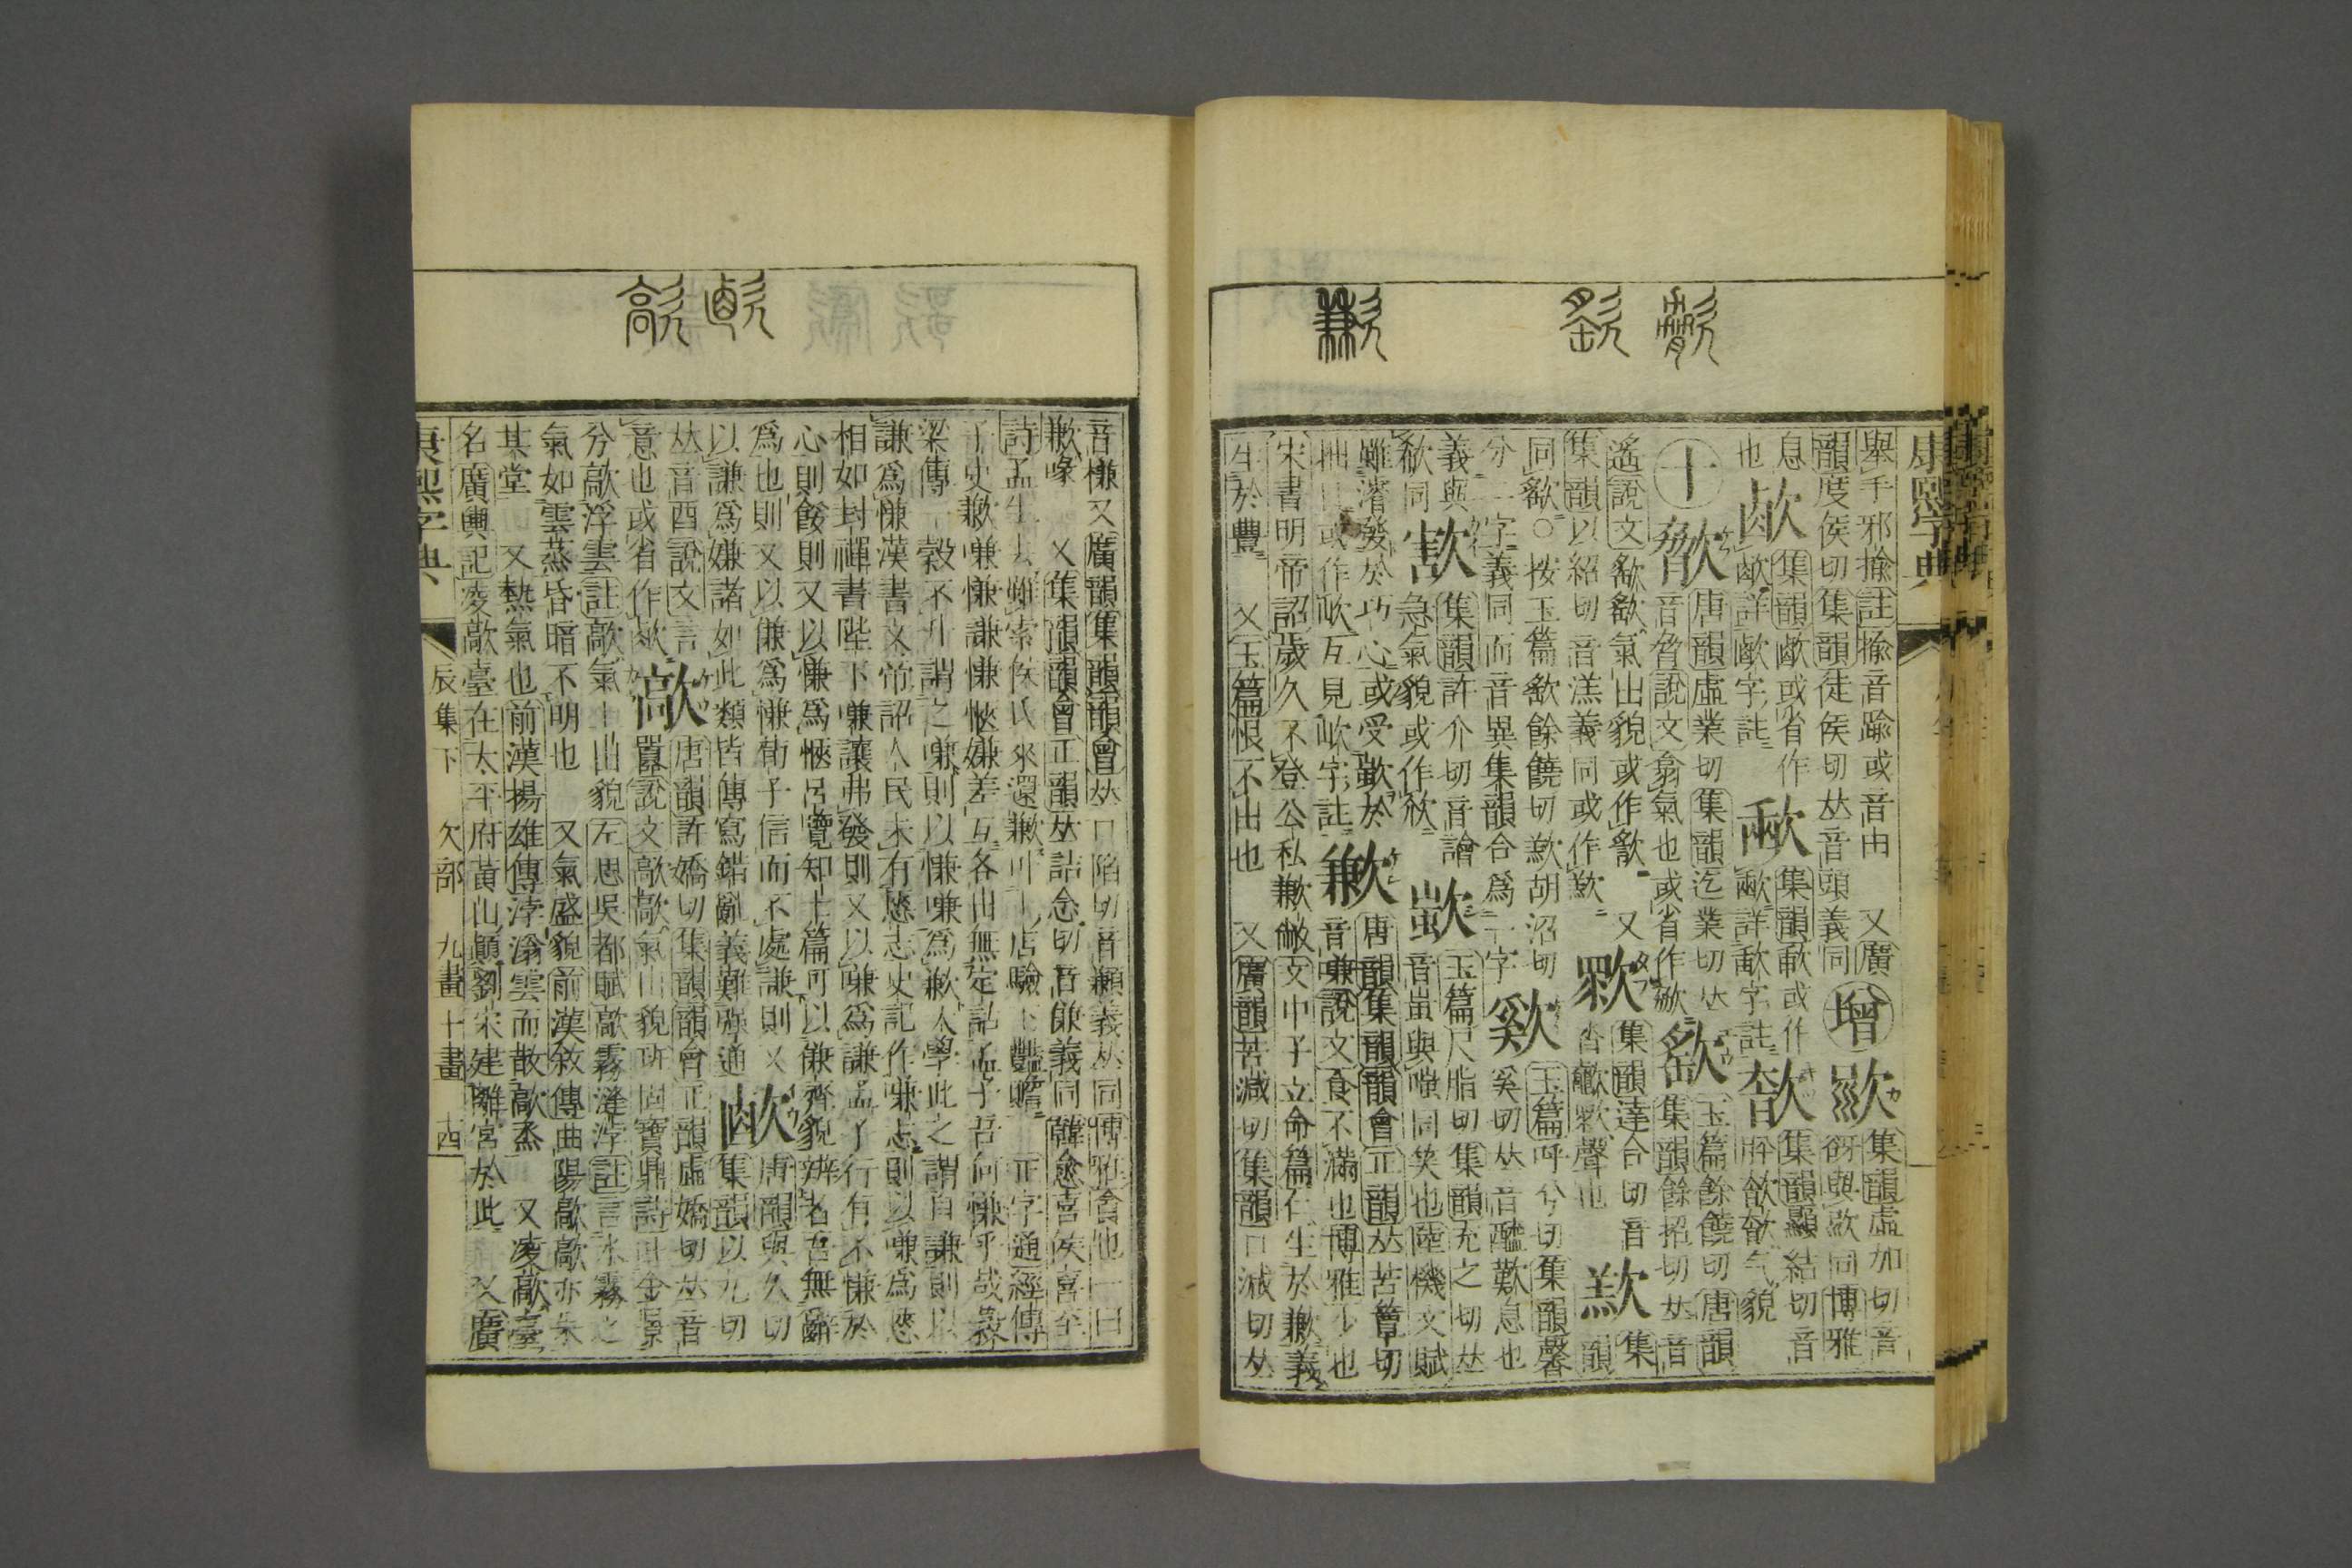 康熙字典
舉手邪揄註揄音踰或音由 又廣 增 集韻虛加切音
韻度侯切集韻徒侯切𠀤音頭義同 谺與 同博雅
息 集韻 或省作 集韻 或作 集韻顯結切音
也 詳 字註 詳 字註 貌
十 歙 唐韻虛業切集韻迄業切𠀤 歊 玉篇餘饒切唐韻
音脅說文翕氣也或省作 集韻餘招切𠀤音
遙說文歊歊氣出貌或作 又 集韻達合切音 集
集韻以紹切音溔義同或作 沓 聲也 韻
同 ○按玉篇 餘饒切 胡沼切 玉篇呼兮切集韻馨
分二字義同而音異集韻合爲一字 奚切𠀤音醯歎息也
義與 集韻許介切音譮 玉篇尺脂切集韻充之切𠀤
欲同 急氣貌或作 音蚩與嗤同笑也陸機文賦
雖濬發於巧心或受歎於 歉 唐韻集韻韻會正韻𠀤苦簟切
拙目或作 互見 字註 音嗛說文食不滿也博雅少也
宋書明帝詔歲久不登公私歉敝文中子立命篇仁生於歉義
生於豐 又玉篇恨不出也 又廣韻苦減切集韻口減切𠀤
音槏又廣韻集韻韻會𠀤口陷切音 義𠀤同博雅貪也一曰
歉喙 又集韻韻會正韻𠀤詰念切音傔義同韓愈喜侯喜至
詩孟生去雖索侯氏來還歉叶上店驗下豔贍 正字通經傳
子史歉嗛慊謙慊愜嫌差互各出無定詁孟子吾何慊乎哉穀
梁傳一穀不升謂之嗛則以慊嗛爲歉大學此之謂自謙則以
謙爲慊漢書文帝詔人民未有愜志史記作嗛志則以嗛爲愜
相如封禪書陛下嗛讓弗發則又以嗛爲謙孟子行有不慊於
心則餒則又以慊爲愜呂覽知士篇可以慊齊貌辨者吾無辭
爲也則又以傔爲慊荀子信而不處謙則又 唐韻與久切
以謙爲嫌諸如此類皆傳寫錯亂義難彊通 集韻以九切
𠀤音酉說文言 歊 唐韻許嬌切集韻韻會正韻虛嬌切𠀤音
意也或省作 囂說文歊歊氣出貌班固寶鼎詩吐金景
兮歊浮雲註歊氣上出貌左思吳都賦歊霧漨浡註言水霧之
氣如雲蒸昏暗不明也 又氣盛貌前漢敘傳曲陽歊歊亦朱
其堂 又熱氣也前漢揚雄傳浡滃雲而散歊烝 又凌歊臺
名廣輿記凌歊臺在太平府黃山巔劉宋建離宮於此 又廣
康熙字典 辰集下 欠部 九畫十畫 四